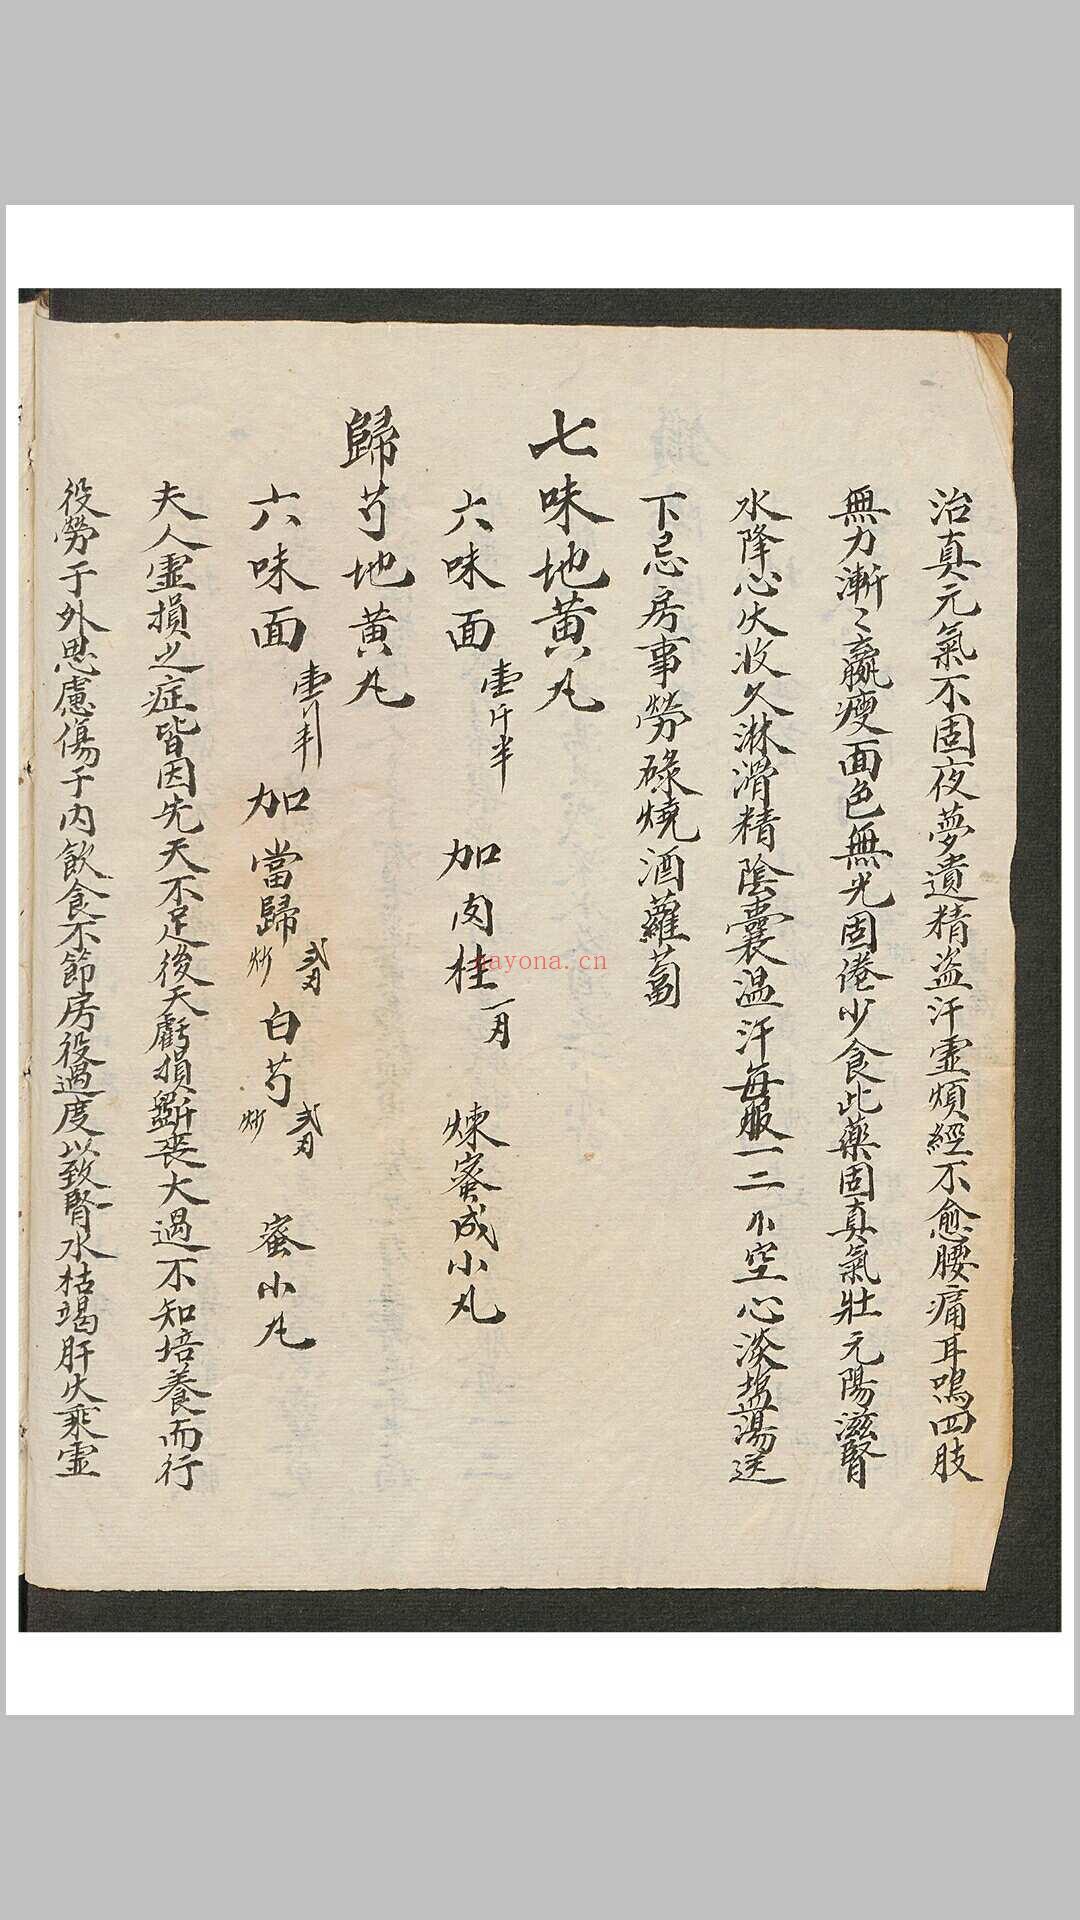 治真元氣不固夜夢遺精盗汗虛煩經不愈腰痛耳鳴四肢
無力漸〻羸瘦面色無光固倦少食此藥固真氣壯元陽滋腎
水降心火收久淋滑精陰囊温汗每服一二小空心淡塩湯送
下忌房事勞碌燒酒蘿蔔
七味地黄丸
六味面壹斤半 加肉桂 煉蜜成小丸
歸芍地黄丸
六味面壹斤半 加當歸炒 白芍炒 蜜小丸
夫人虛損之症皆因先天不足後天虧損斲喪大過不知培養而行
役勞于外思慮傷于内飲食不節房役過度以致腎水枯竭肝火乘虛
nayona.cn